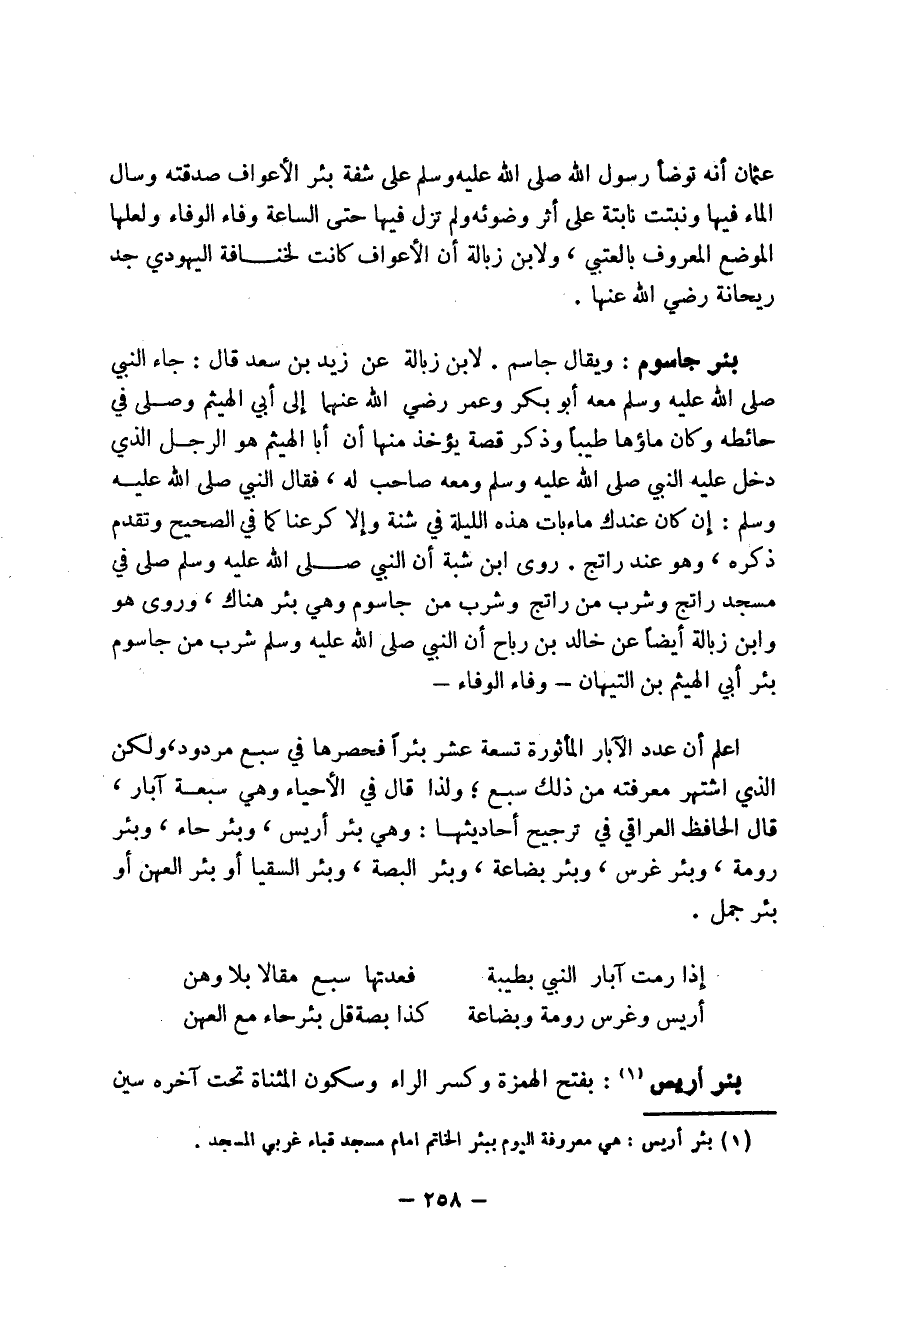 عثمان أنه توضأ رسول الله صلى الله عليه وسلم على شفة بئر الأعواف صدقته وسال
الماء فيها ونبتت نابتة على أثر وضوئه ولم تزل فيها حتى الساعة وفاء الوفاء ولعلها
الموضع المعروف بالعتبي ، ولابن زبالة أن الأعواف كانت لخنـــافة اليهودي جد
ريحانة رضي الله عنها .
بئر جاسوم : ويقال جاسم . لابن زبالة عن زيد بن سعد قال : جاء النبي
صلى الله عليه وسلم معه أبو بكر وعمر رضي الله عنهما إلى أبي الهيثم وصـلى في
حائطه وكان ماؤها طيباً وذكر قصة يؤخذ منها أن أبا الهيثم هو الرجـل الذي
دخل عليه النبي صلى الله عليه وسلم ومعه صاحب له ، فقال النبي صلى الله عليـه
وسلم : إن كان عندك ماء بات هذه الليلة في شنة وإلا كرعنا كما في الصحيح وتقدم
ذكره ، وهو عند راتج . روى ابن شبة أن النبي صـــلى الله عليه وسلم صلى في
مسجد راتج وشرب من راتج وشرب من جاسوم وهي بئر هناك ، وروى هو
وابن زبالة أيضاً عن خالد بن رباح أن النبي صلى الله عليه وسلم شرب من جاسوم
بئر أبي الهيثم بن التيهان – وفاء الوفاء –
اعلم أن عدد الآبار المأثورة تسعة عشر بئراً فحصرها في سبع مردود، ولكن
الذي اشتهر معرفته من ذلك سبع ؛ ولذا قال في الأحياء وهي سبعـة آبار ،
قال الحافظ العراقي في ترجيح أحاديثهـا : وهي بئر أريس ، وبئر حاء ، وبئر
رومة ، وبئر غرس ، وبئر بضاعة ، وبئر البصة ، وبئر السقيا أو بئر العهن أو
بئر جمل .
إذا رمت آبار النبي بطيبة فعدتها سبع مقالا بلا وهن
أريس وغرس رومة وبضاعة كذا بصة قل بئر حاء مع العهن
بئر أريس (١) : بفتح الهمزة وكسر الراء وسكون المثناة تحت آخره سين
(١) بئر أريس : هي معروفة اليوم ببئر الخاتم امام مسجد قباء غربي المسجد .
– ٢٥٨ –